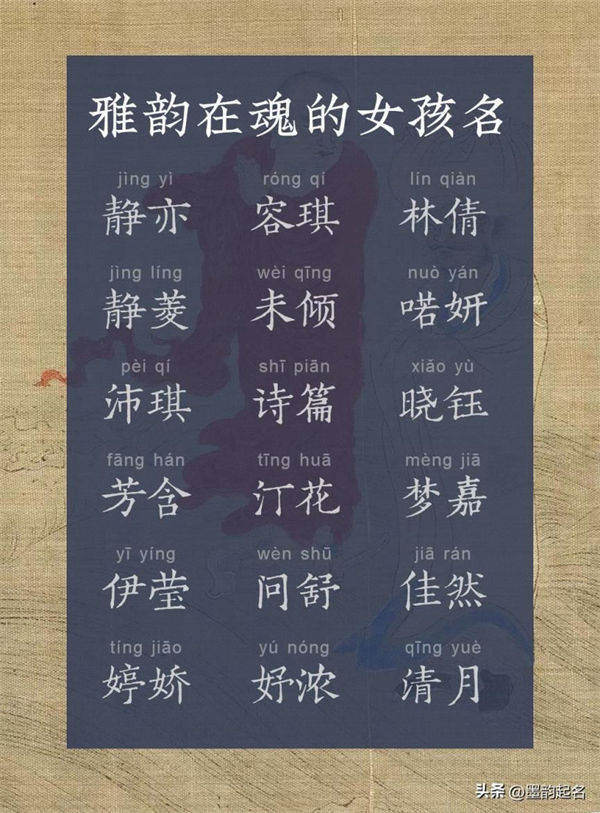 雅韵在魂的女孩名
jìng yì róng qí lín qiàn
静亦 容琪 林倩
jìng líng wèi qīng nuò yán
静菱 未倾 喏妍
pèi qí shī piān xiǎo yù
沛琪 诗篇 晓钰
fāng hán tīng huā mèng jiā
芳含 汀花 梦嘉
yī yíng wèn shū jiā rán
伊莹 问舒 佳然
tíng jiāo yú nóng qīng yuè
婷娇 妤浓 清月
头条 @墨韵起名